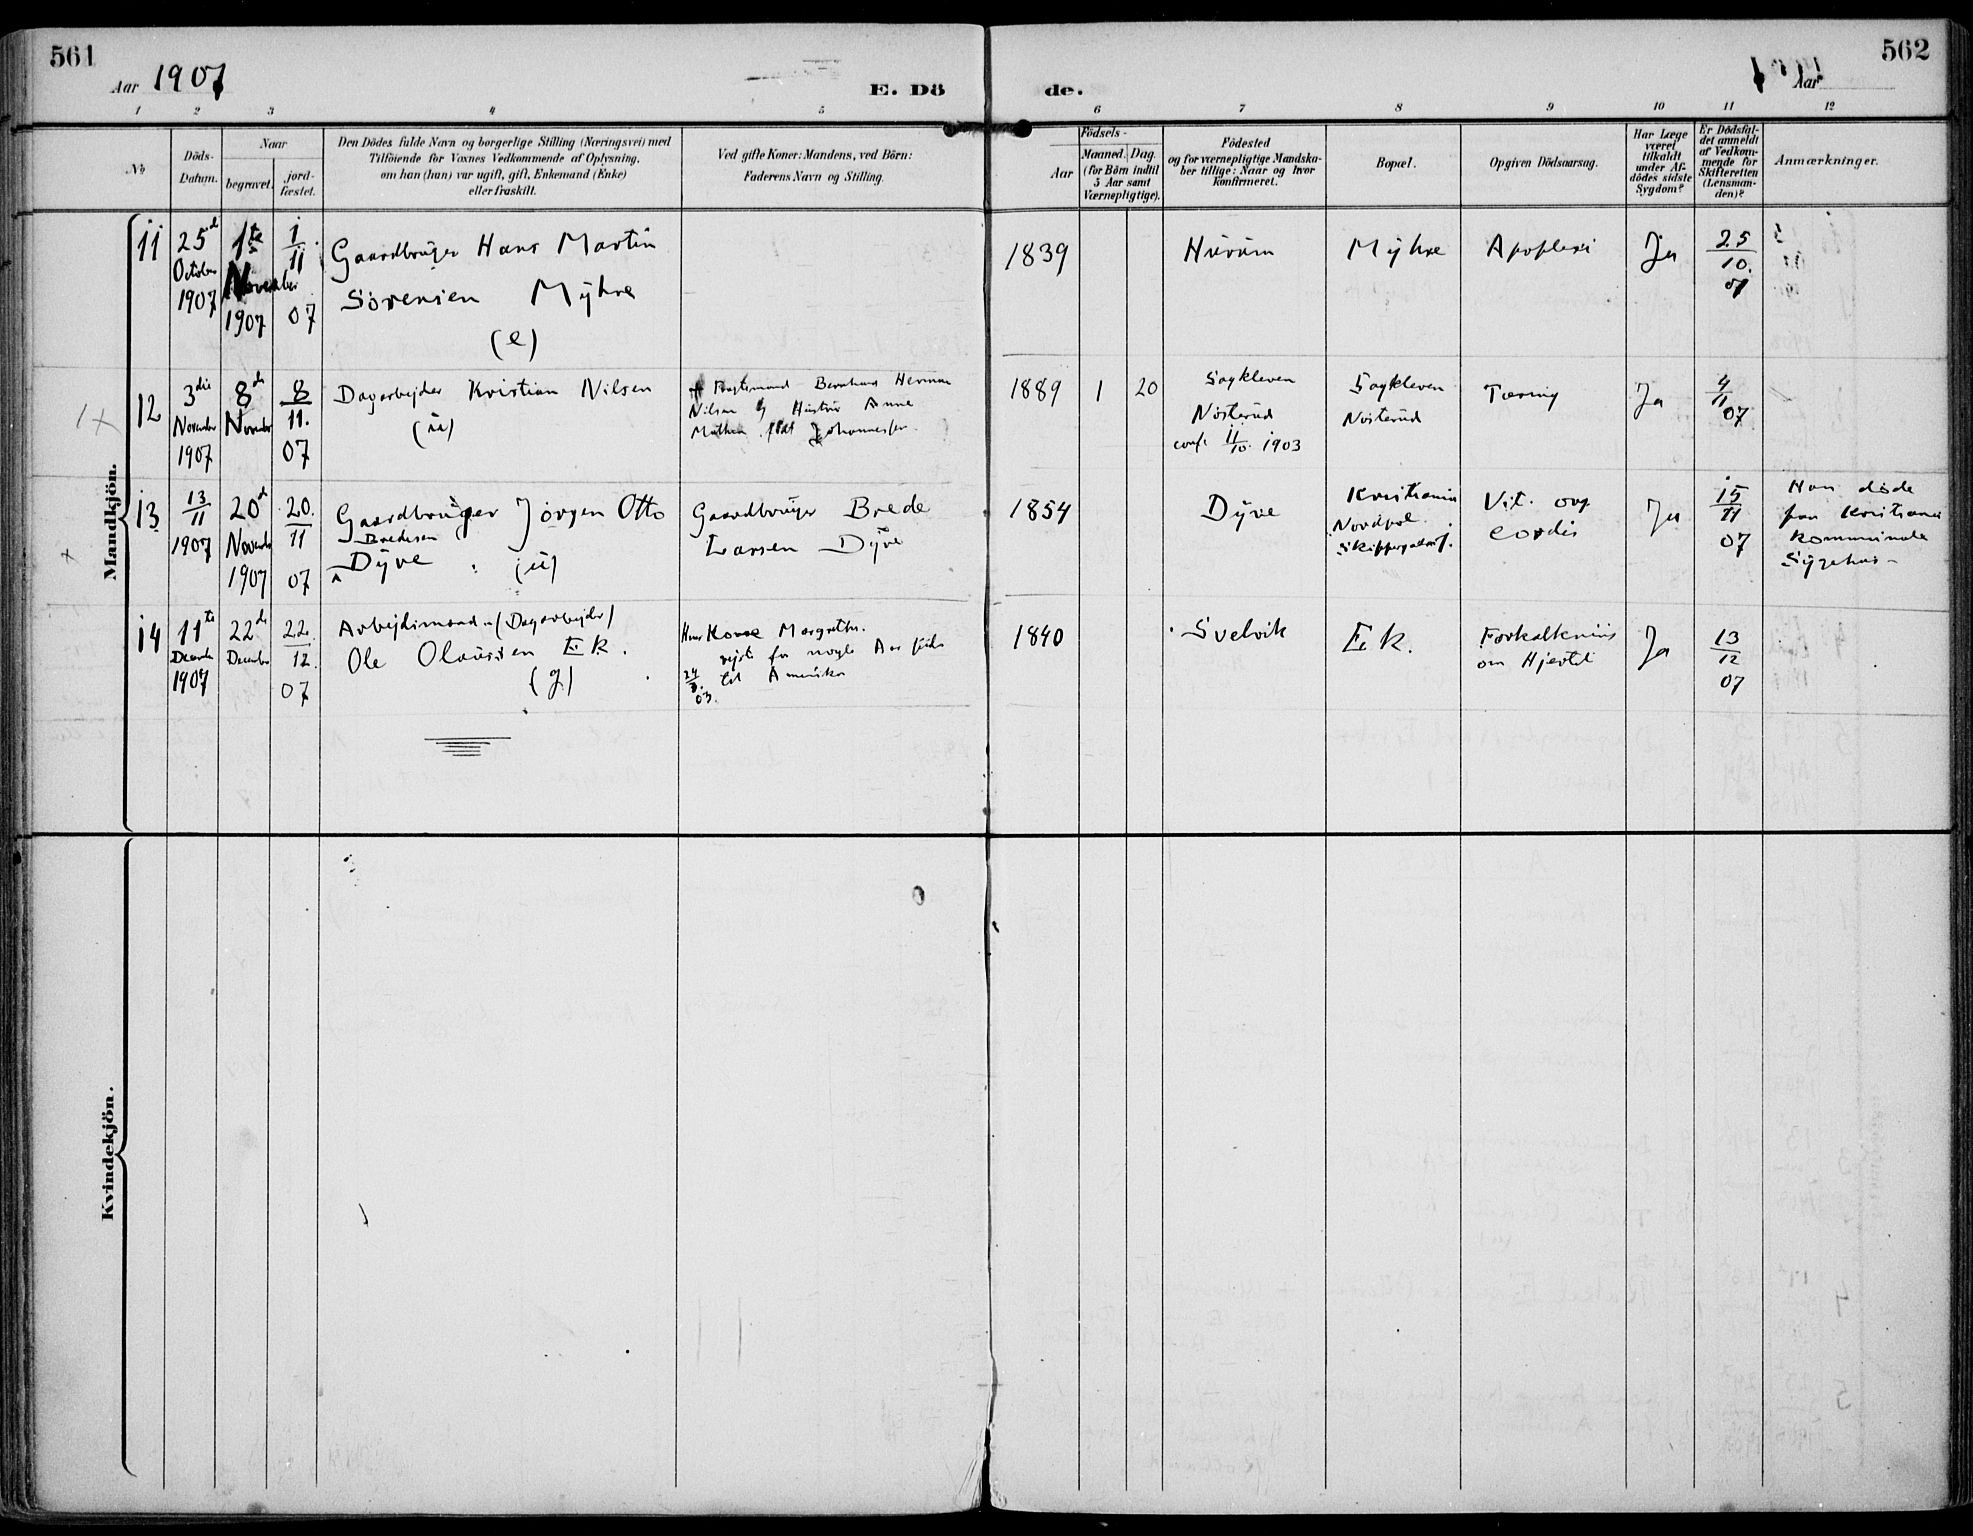 561
Aar 1907
E. Dö
de.
562
Aar
1 2 3 4 5 6 7 8 9 10 11 12
No
Döds-
Datum.
Naar
begravet.
jord-
fæstet.
Den Dödes fulde Navn og borgerlige Stilling (Næringsvei) med
Tilföiende for Voxnes Vedkommende af Oplysning,
om han (hun) var ugift, gift, Enkemand (Enke)
eller fraskilt.
Ved gifte Koner: Mandens, ved Börn:
Faderens Navn og Stilling.
Födsels-
Aar
Maaned. Dag.
(for Börn indtil
5 Aar samt
Værnepligtige).
Födested
og for værnepligtige Mandska-
ber tillige: Naar og hvor
Konfirmeret.
Bopæl.
Opgiven Dödsaarsag.
Har Læge
været
tilkaldt
under Af-
dödes sidste
Sygdom?
Er Dödsfal-
det anmeldt
af Vedkom-
mende for
Skifteretten
(Lensman-
den)?
Anmærkninger.
Mandkjön.
11
25d
October
1907
1ste
November
1907
1
11
07
Gaardbrüger Hans Martin
Sörensen Myhre
(e)
1839
Hürüm
Myhre
Apoplexi
Ja
25
10.
07
12
3die
November
1907
8de
November
8
11.
07
Dagarbejder Kristian Nilsen
(ü)
Bernhard Herman
Nilsen og Hüstrü Anna
Mathea född Johannesen
1889
1
20
Sagkleven
Nösterüd
conf. 11/10. 1903
Sagkleven
Nösterüd
Tæring
Ja
4
11
07
13
13
11
1907
20de
November
1907
20.
11
07
Gaardbrüger Jörgen Otto
Bredesen
Dyve (ü)
Gaardbrüger Brede
Larsen Dyve
1854
Dyve
Kristiania
Nordpol
Vit. org
cordis
Ja
15
11
07
Han döde
paa Kristiania
kommunale
Sygehus
14
11te
December
1907
22de
December
22
12.
07
Arbejdsmand (Dagarbejder)
Ole Olaüssen Ek.
(g)
Hans Kone Margrethe
rejste for nogle Aar siden
24
8.
03.
til Amerika
1840
Svelvik
Ek.
Forkalkning
om Hjertet
Ja
13
12
07
Kvindekjön.